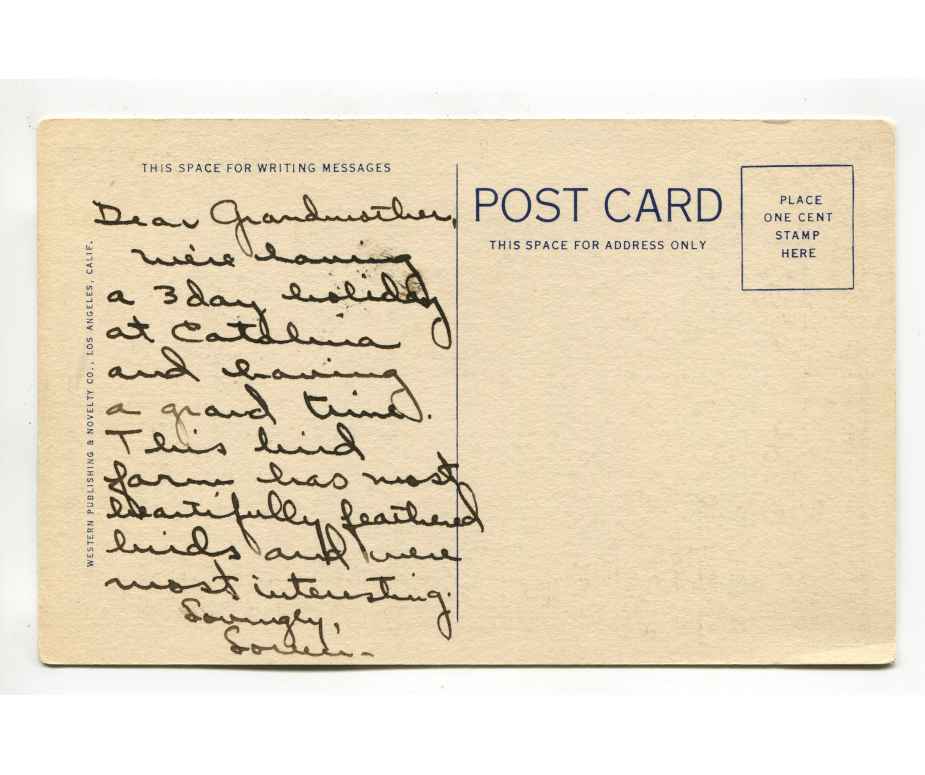 THIS SPACE FOR WRITING MESSAGES
Dear Grandmother,
We're having
a 3 day holiday
at Catalina
and having
a grand time.
This bird
farm has most
beautifully feathered
birds and were
most interesting.
Lovingly,
WESTERN PUBLISHING & NOVELTY CO., LOS ANGELES, CALIF.
POST CARD
THIS SPACE FOR ADDRESS ONLY
PLACE
ONE CENT
STAMP
HERE